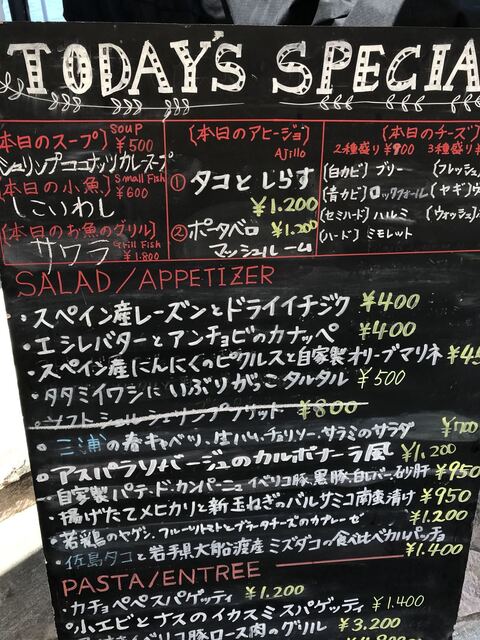 TODAY'S SPECIA
本日のスープ〕 SOUP ¥500
シュリンプココナッツカレースープ
〔本日の小魚〕 Small Fish ¥600
しこいわし
〔本日のお魚のグリル〕 Grill Fish ¥1.800
サワラ
〔本日のアヒージョ〕
Ajillo
① タコとしらす
¥1.200
② ポータベロ ¥1.200
マッシュルーム
〔本日のチーズ
2種盛り ¥900 3種盛り
〔白カビ〕 ブリー 〔フレッシュ
〔青カビ〕 ロックフォール 〔ヤギ〕
〔セミハード〕 ハルミ 〔ウォッシュ
〔ハード〕 ミモレット
SALAD/APPETIZER
・スペイン産レーズンとドライイチジク ¥400
・エシレバターとアンチョビのカナッペ ¥400
・スペイン産にんにくのピクルスと自家製オリーブマリネ ¥45
・タタミイワシにいぶりがっこタルタル ¥500
・ソフトシェルシュリンプフリット ¥800
・三浦の春キャベツ、生ハム、チョリソー、サラミのサラダ ¥700
・アスパラソバージュのカルボナーラ風 ¥1.200
・自家製パテ・ド・カンパーニュ イベリコ豚、黒豚、白レバー、砂肝 ¥950
・揚げたてメヒカリと新玉ねぎのバルサミコ南蛮漬け ¥950
・若鶏のヤゲン、フルーツトマトとブラータチーズのカプレーゼ ¥1.200
・佐島タコと岩手県大船渡産ミズダコの食べ比べカルパッチョ ¥1.400
PASTA/ENTREE
・カチョペペスパゲッティ ¥1.200
・小エビとナスのイカスミスパゲッティ ¥1.400
イベリコ豚ロース肉のグリル ¥3.200